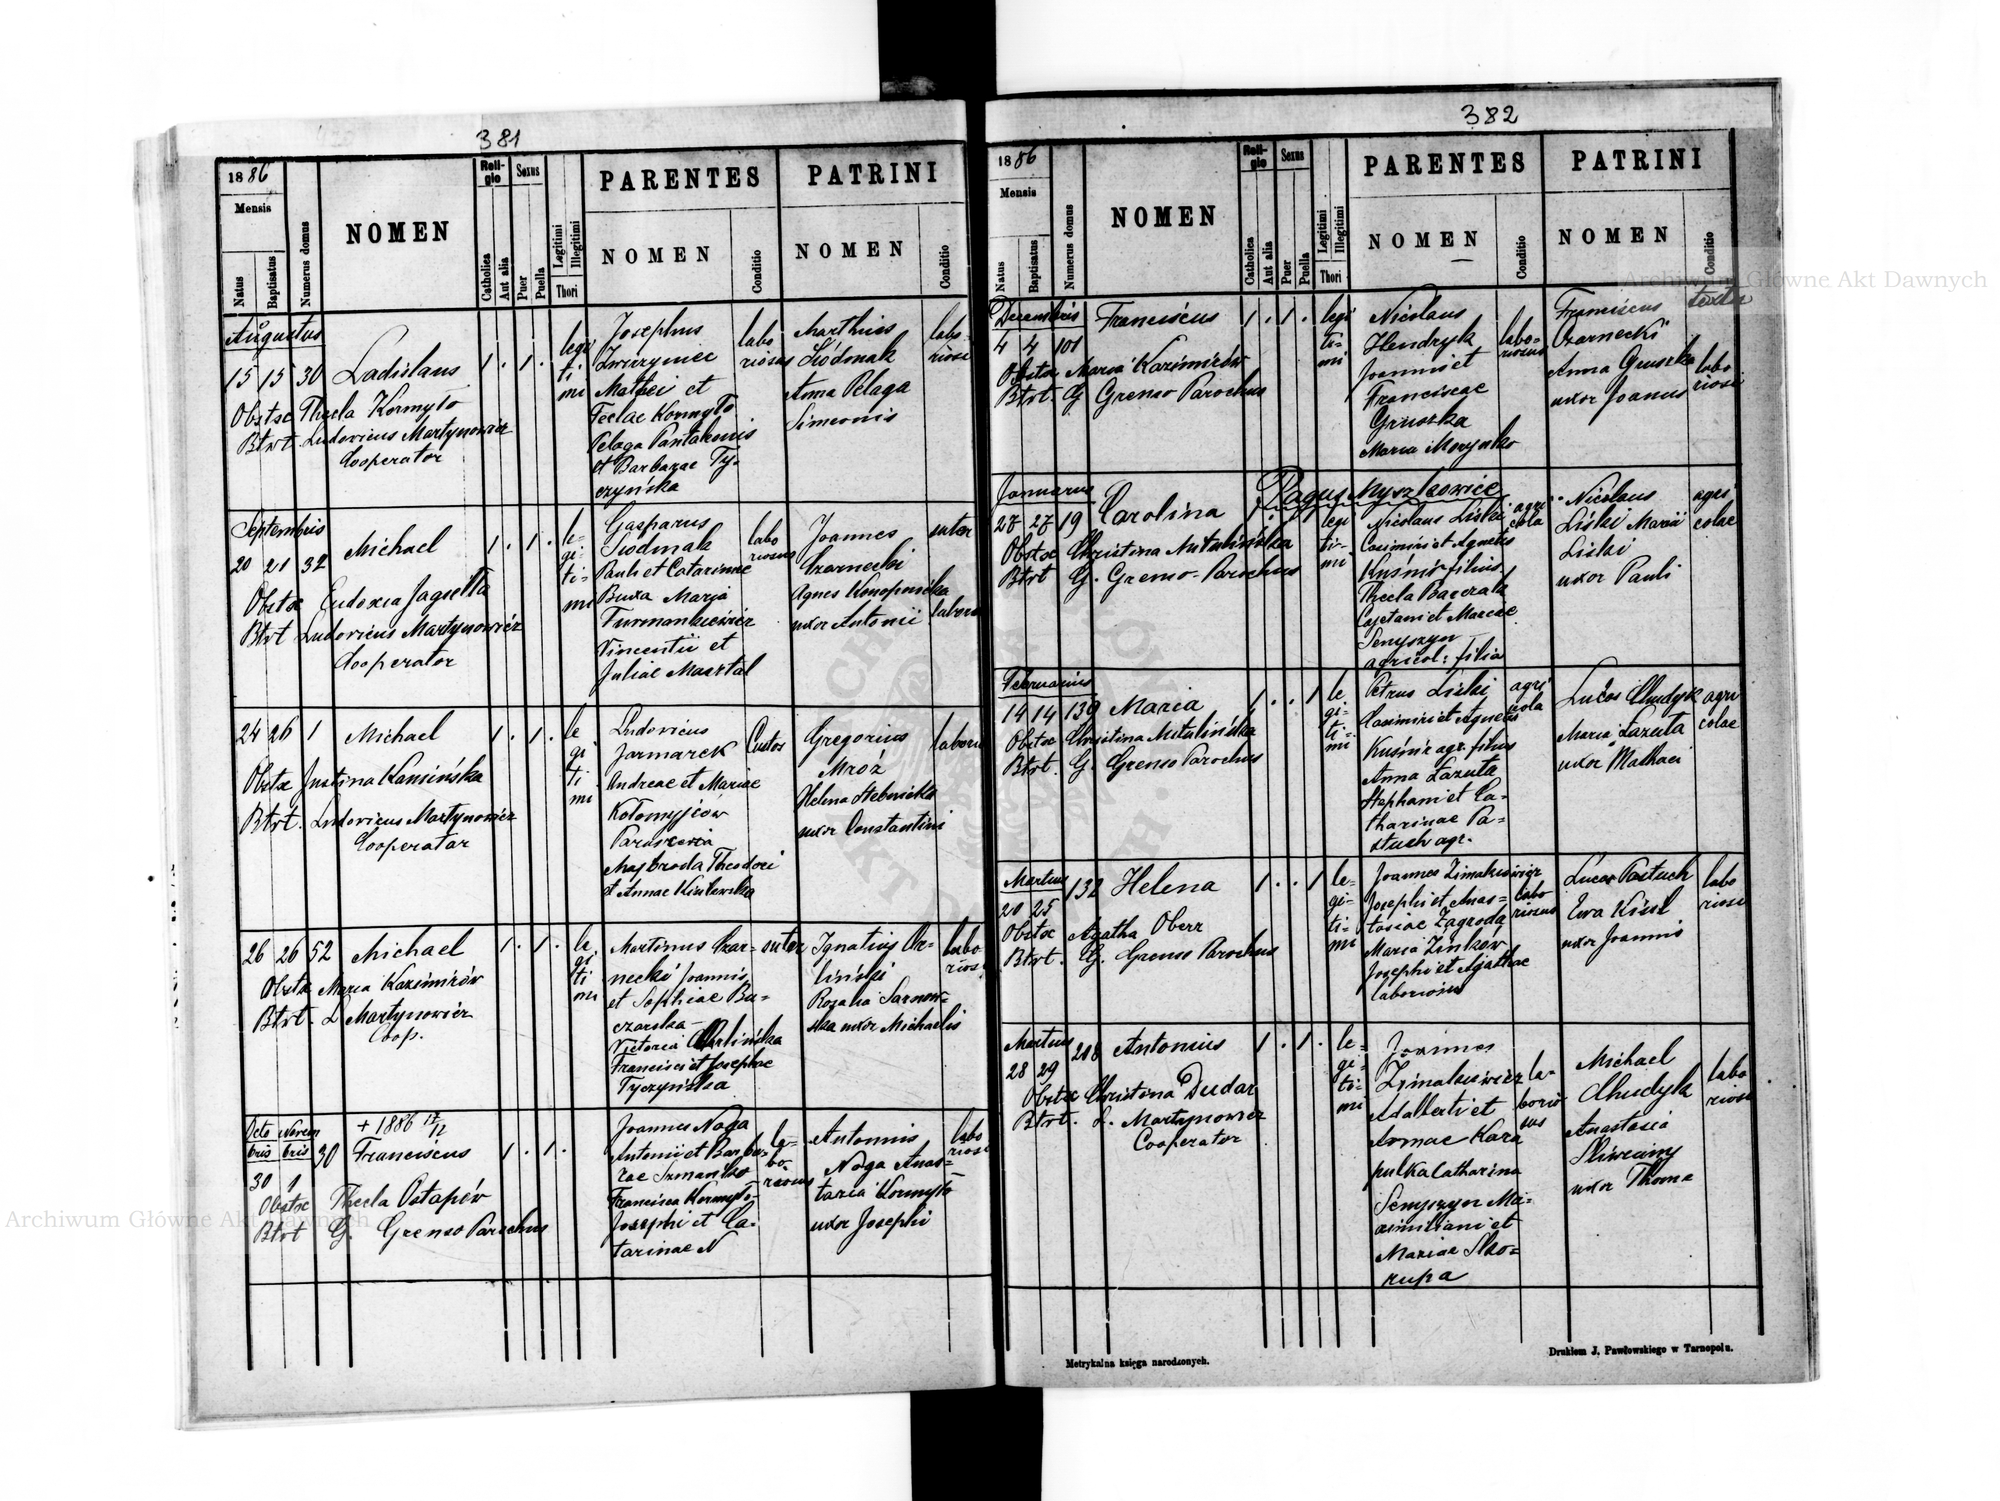 381
1886
Mensis
Natus
Baptisatus
Numerus domus
NOMEN
Religio
Catholica
Aut alia
Sexus
Puer
Puella
Legitimi
Illegitimi
Thori
PARENTES
NOMEN
Conditio
PATRINI
NOMEN
Conditio
Augustus
15 15 30 Ladislaus 1 . 1 .
Obstx Thecla Kormyło
Btvt. Ludovicus Martynowicz
Cooperator
legi
ti
mi
Josephus
Zwirzyniec
Mathei et
Teclae Kormyło
Pelaga Pantaleonis
et Barbarae Ty-
czyńska
labo
riosus
Marthius
Siódmak
Anna Pelaga
Simeonis
labo-
riosi
Septembris
20 21 32 Michael 1 . 1 .
Obstx Eudoxia Jagiełła
Btvt Ludovicus Martynowicz
Cooperator
le-
gi-
ti-
mi
Gasparus
Siodmak
Pauli et Catarinae
Buxa Maria
Furmankiewicz
Vincentii et
Juliae Musztal
labo
riosus
Joannes
Czarnecki
Agnes Konopnicka
uxor Antonii
sutor
labori
24 26 1 Michael 1 . 1 .
Obstx Justina Kamińska
Btvt. Ludovicus Martynowicz
Cooperator
le
gi
ti
mi
Ludovicus
Jarmarek
Andreae et Mariae
Kołomyjców
Paraszevia
Majbroda Theodori
et Annae
Custos
Gregorius
Mroź
Helena Stebnicka
uxor Constantini
labori
26 26 52 Michael 1 . 1 .
Obstx Maria Kazimirów
Btvt. L Martynowicz
Coop.
le
gi
ti
mi
Martinus Czar-
necki Joannis
et Sophiae Bu-
czarska
Victoria Orlińska
Francisci et Josephae
Tyczyńska
sutor
Ignatius Or-
liński
Rozalia Sarnow-
ska uxor Michaelis
labo
riosi
Octo
bris
Novem
bris
+ 1886 17/12
30 1 30 Franciscus 1 . 1 .
Obstx Thecla Ostapów
Btvt G. Grenso Parochus
Joannes Noga
Antonii et Barba-
rae Szmańko
Francisca Kormyło
Josephi et Ca-
tarinae N
la-
bo-
riosus
Antonius
Noga Anas-
tazia Kormyło
uxor Josephi
labo
riosi
382
1886
Mensis
Natus
Baptisatus
Numerus domus
NOMEN
Religio
Catholica
Aut alia
Sexus
Puer
Puella
Legitimi
Illegitimi
Thori
PARENTES
NOMEN
Conditio
PATRINI
NOMEN
Conditio
Decembris
4 4 101 Franciscus 1 . 1 .
Obstx Maria Kazimirów
Btvt. G Grenso Parochus
legi
ti-
mi
Nicolaus
Hendryk
Joannis et
Franciscae
Gruszka
Maria Mozysko
labo-
riosus
Franciscus
Czarnecki
Anna Gruszka
uxor Joannis
labo
riosi
Pagus Myszkowice
Januarius
27 27 19 Carolina
Obstx Christina Mitulińska
Btvt G. Grenso Parochus
legi
ti-
mi
Nicolaus Liski
Casimiri et Agnetis
Kuśnir filius
Thecla Baczrak
Cajetani et Mariae
Senyszyn
agricol: filia
agri
cola
Nicolaus
Liski Maria
Liski
uxor Pauli
agri
colae
Februarius
14 14 139 Maria 1 . . 1
Obstx Christina Mitulińska
Btvt. G. Grenso Parochus
le
gi-
ti-
mi
Petrus Liski
Casimiri et Agnetis
Kuśnir agr. filius
Anna Łazuta
Stephani et Ca-
tharinae Pa-
stuch agr.
agri
cola
Lucas Chudyk
Maria Łazuta
uxor Mathaei
agri
colae
Martius
20 25 132 Helena 1 . . 1
Obstx Agatha Oberz
Btvt. G. Grenso Parochus
le-
gi-
ti-
mi
Joannes Zimakiewicz
Josephi et Anas-
tasiae Zagroda
Maria Zinkow
Josephi et Agathae
laboriosus
labo
riosus
Lucas Pastuch
Ewa Kisil
uxor Joannis
labo
riosi
Martius
28 29 218 Antonius 1 . 1 .
Obstx Christina Dudar
Btvt. L. Martynowicz
Cooperator
le-
gi-
ti-
mi
Joannes
Zimakiewicz
Adalberti et
Annae Kara
pulka Catharina
Senyszyn Ma-
ximiliani et
Mariae Sko-
rupa
la-
borio
sus
Michael
Chudyk
Anastasia
Śliwciany
uxor Thomae
labo
riosi
Metrykalna księga narodzonych.
Drukiem J. Pawłowskiego w Tarnopolu.
Archiwum Główne Akt Dawnych
Archiwum Główne Akt Dawnych